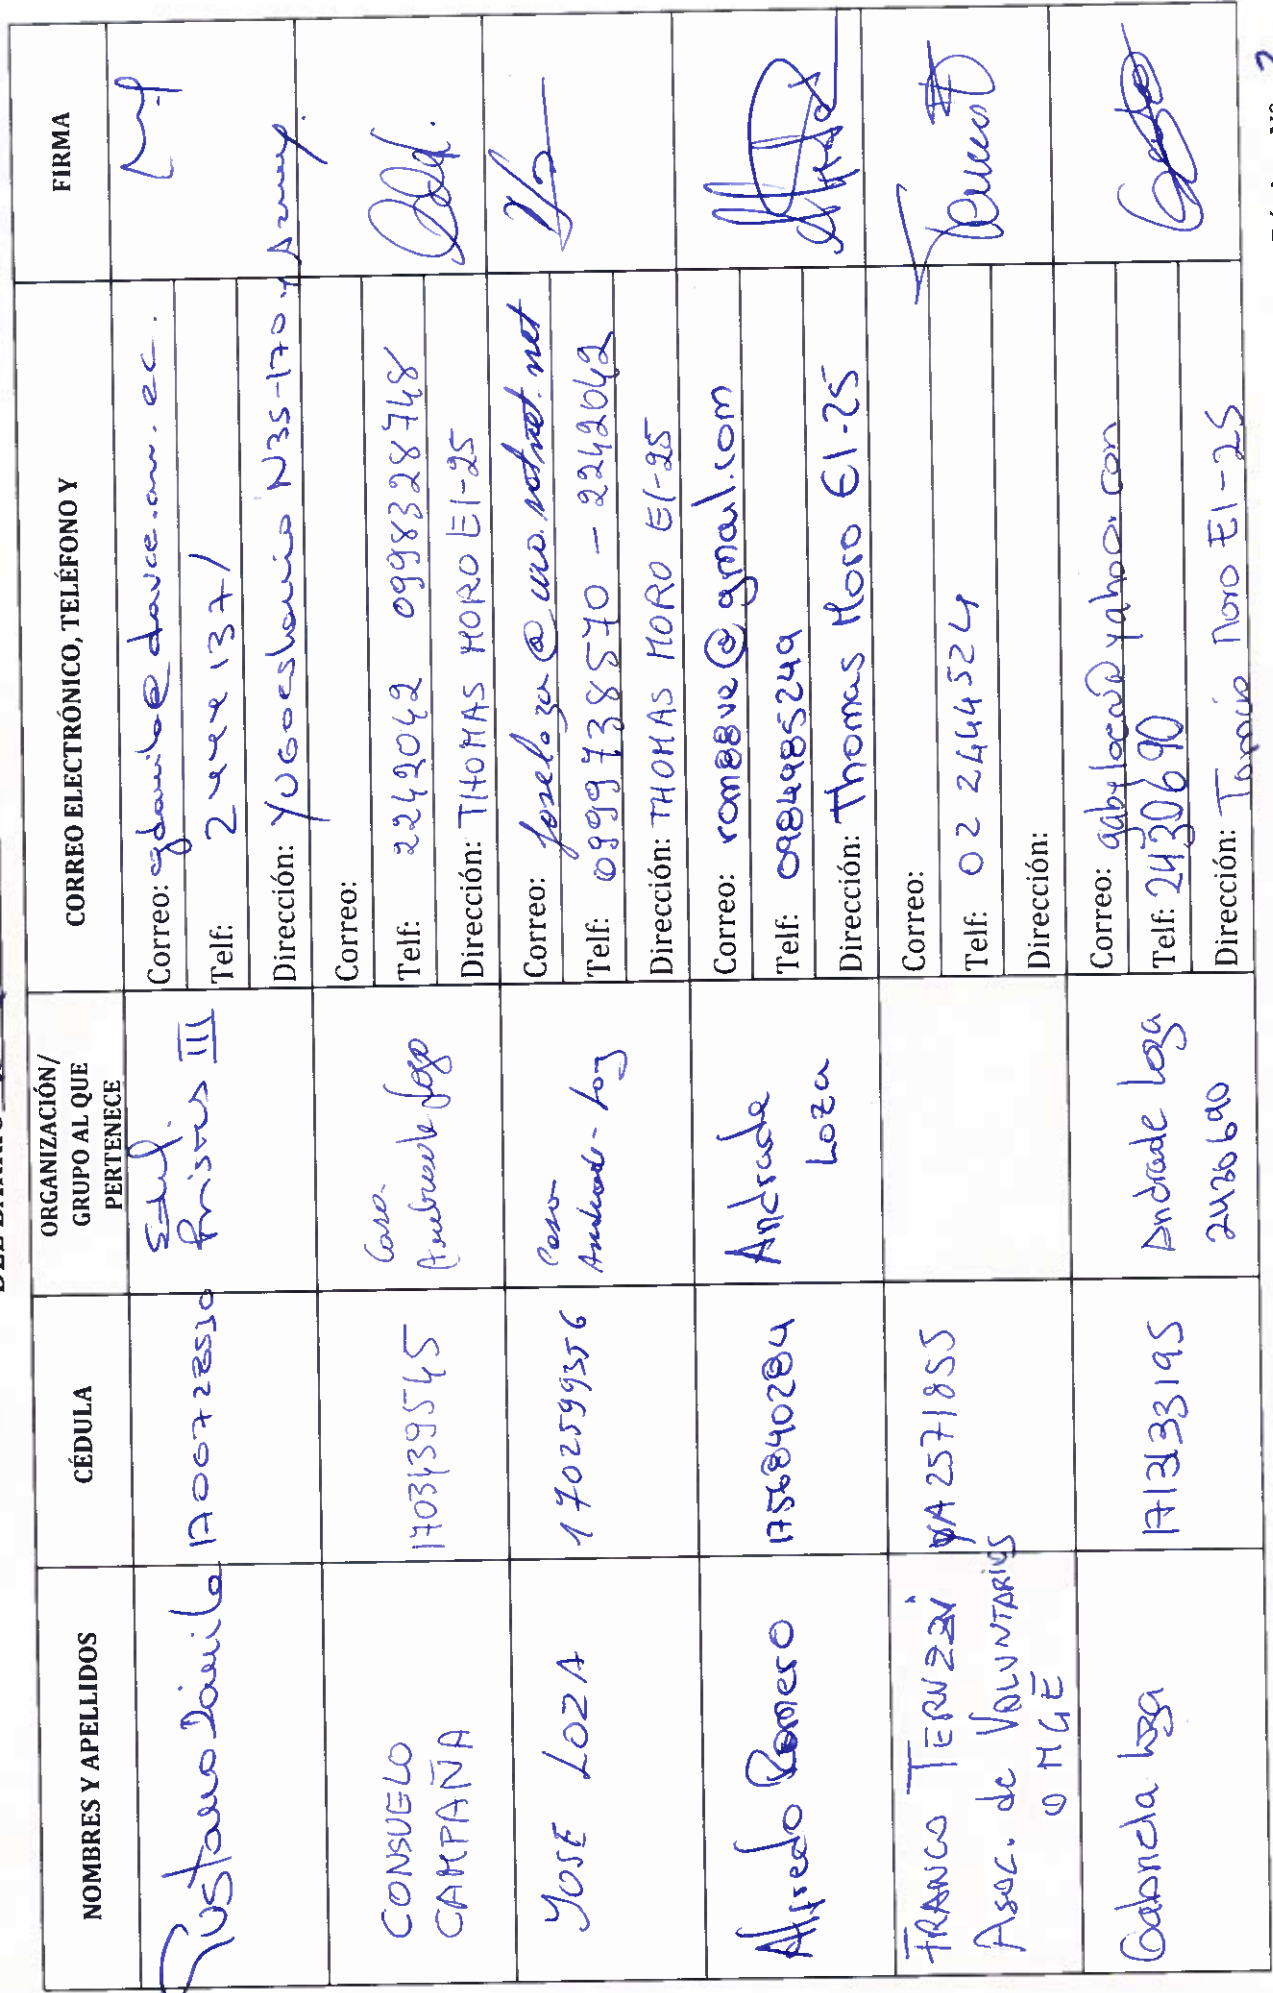 NOMBRES Y APELLIDOS
CÉDULA
ORGANIZACIÓN/
GRUPO AL QUE
PERTENECE
CORREO ELECTRÓNICO, TELÉFONO Y
FIRMA
Gustavo Dávila
17006728530
Edif.
Prisres III
Correo:
Telf: 2444137
Dirección: Yugoeslavia N35-170 y Azuay.
CONSUELO
CAMPAÑA
1703439545
Casa
Andrade Loza
Correo:
Telf: 2242042 0998328748
Dirección: THOMAS MORO E1-25
JOSE LOZA
1702599356
Casa
Andrade - Loz
Correo: joseloza@uio.satnet.net
Telf: 0999738570 - 2242042
Dirección: THOMAS MORO E1-25
Alfredo Romero
1756840284
Andrade
Loza
Correo: rom88ve@gmail.com
Telf: 0984985249
Dirección: Thomas Moro E1-25
FRANCO TERNZZI
Asoc. de VOLUNTARIOS
OMGE
YA2571855
Correo:
Telf: 02 2444524
Dirección:
Gabriela Loza
1713133195
Andrade Loza
2430690
Correo: gabylocaa@yahoo.com
Telf: 2430690
Dirección: Tomás Moro E1-25